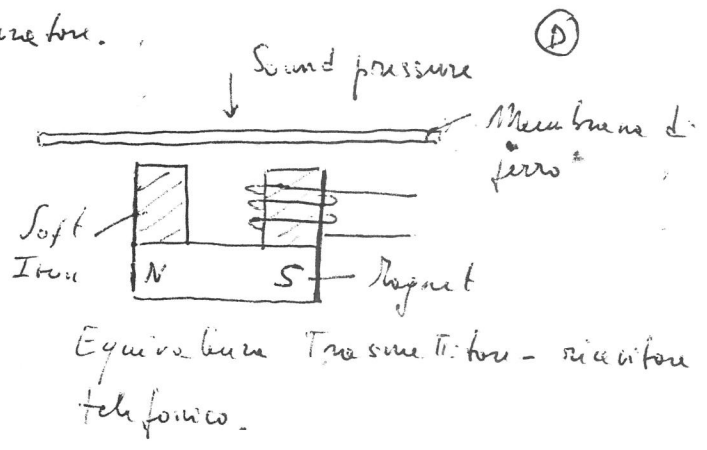 D
Sound pressure
Membrana di
ferro
Soft
Iron
N
S
Magnet
Equivalenza Trasmettitore - ricevitore
telefonico.